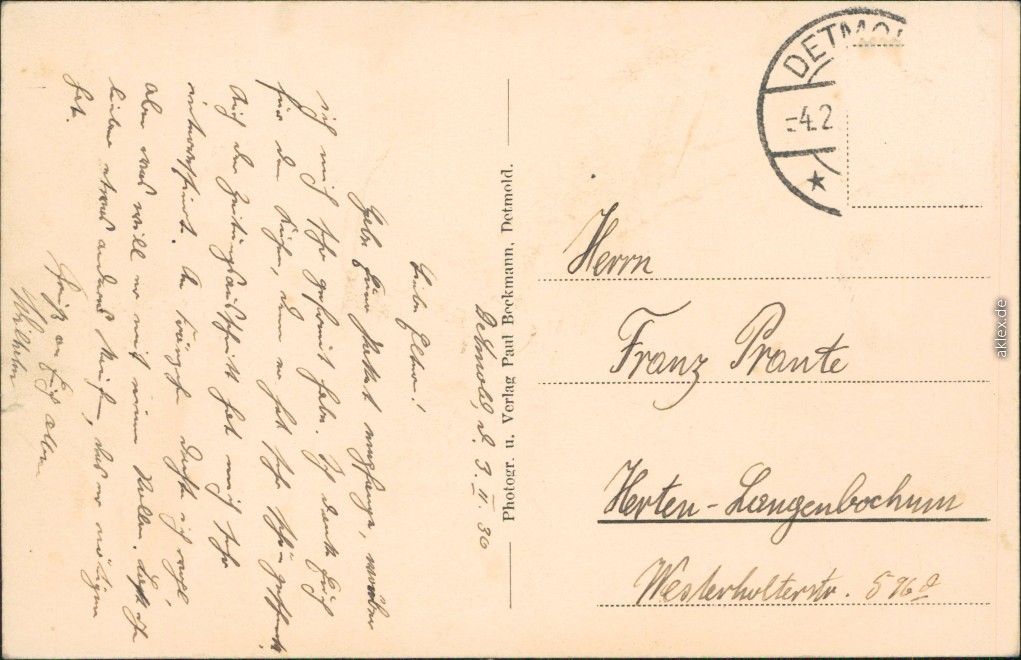 Detmold, d. 3. II. 30
Liebe Eltern!
Habe Eure Paket empfangen, worüber
ich mich sehr gefreut habe. Ich danke Euch
für den Kuchen, denn er hat sehr schön geschmeckt.
Auch der Zeitungsausschnitt hat mich sehr
interessiert. An
aber was will er mit einem Rollen.
lieber etwas anderes kaufen, was er nötiger
hat.
Gruß an Euch allen
Wilhelm
Photogr. u. Verlag Paul Beckmann, Detmold.
DETMOL
-4.2
Herrn
Franz Prante
Herten-Langenbochum
Westerholterstr. 596a
aklex.de